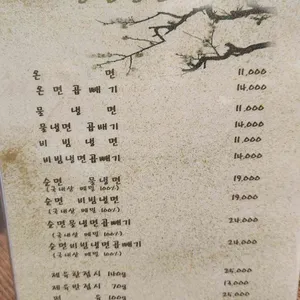 온 면 11,000
온면곱빼기 14,000
물 냉 면 11,000
물냉면 곱빼기 14,000
비 빔 냉 면 11,000
비빔냉면곱빼기 14,000
순면 물냉면 19,000
(국내산 메밀 100%)
순면 비빔냉면 19,000
(국내산 메밀 100%)
순면물냉면곱빼기 24,000
(국내산 메밀 100%)
순면비빔냉면곱빼기 24,000
(국내산 메밀 100%)
제육한접시 140g 25,000
제육반접시 70g 13,000
편 육 100g 25,000